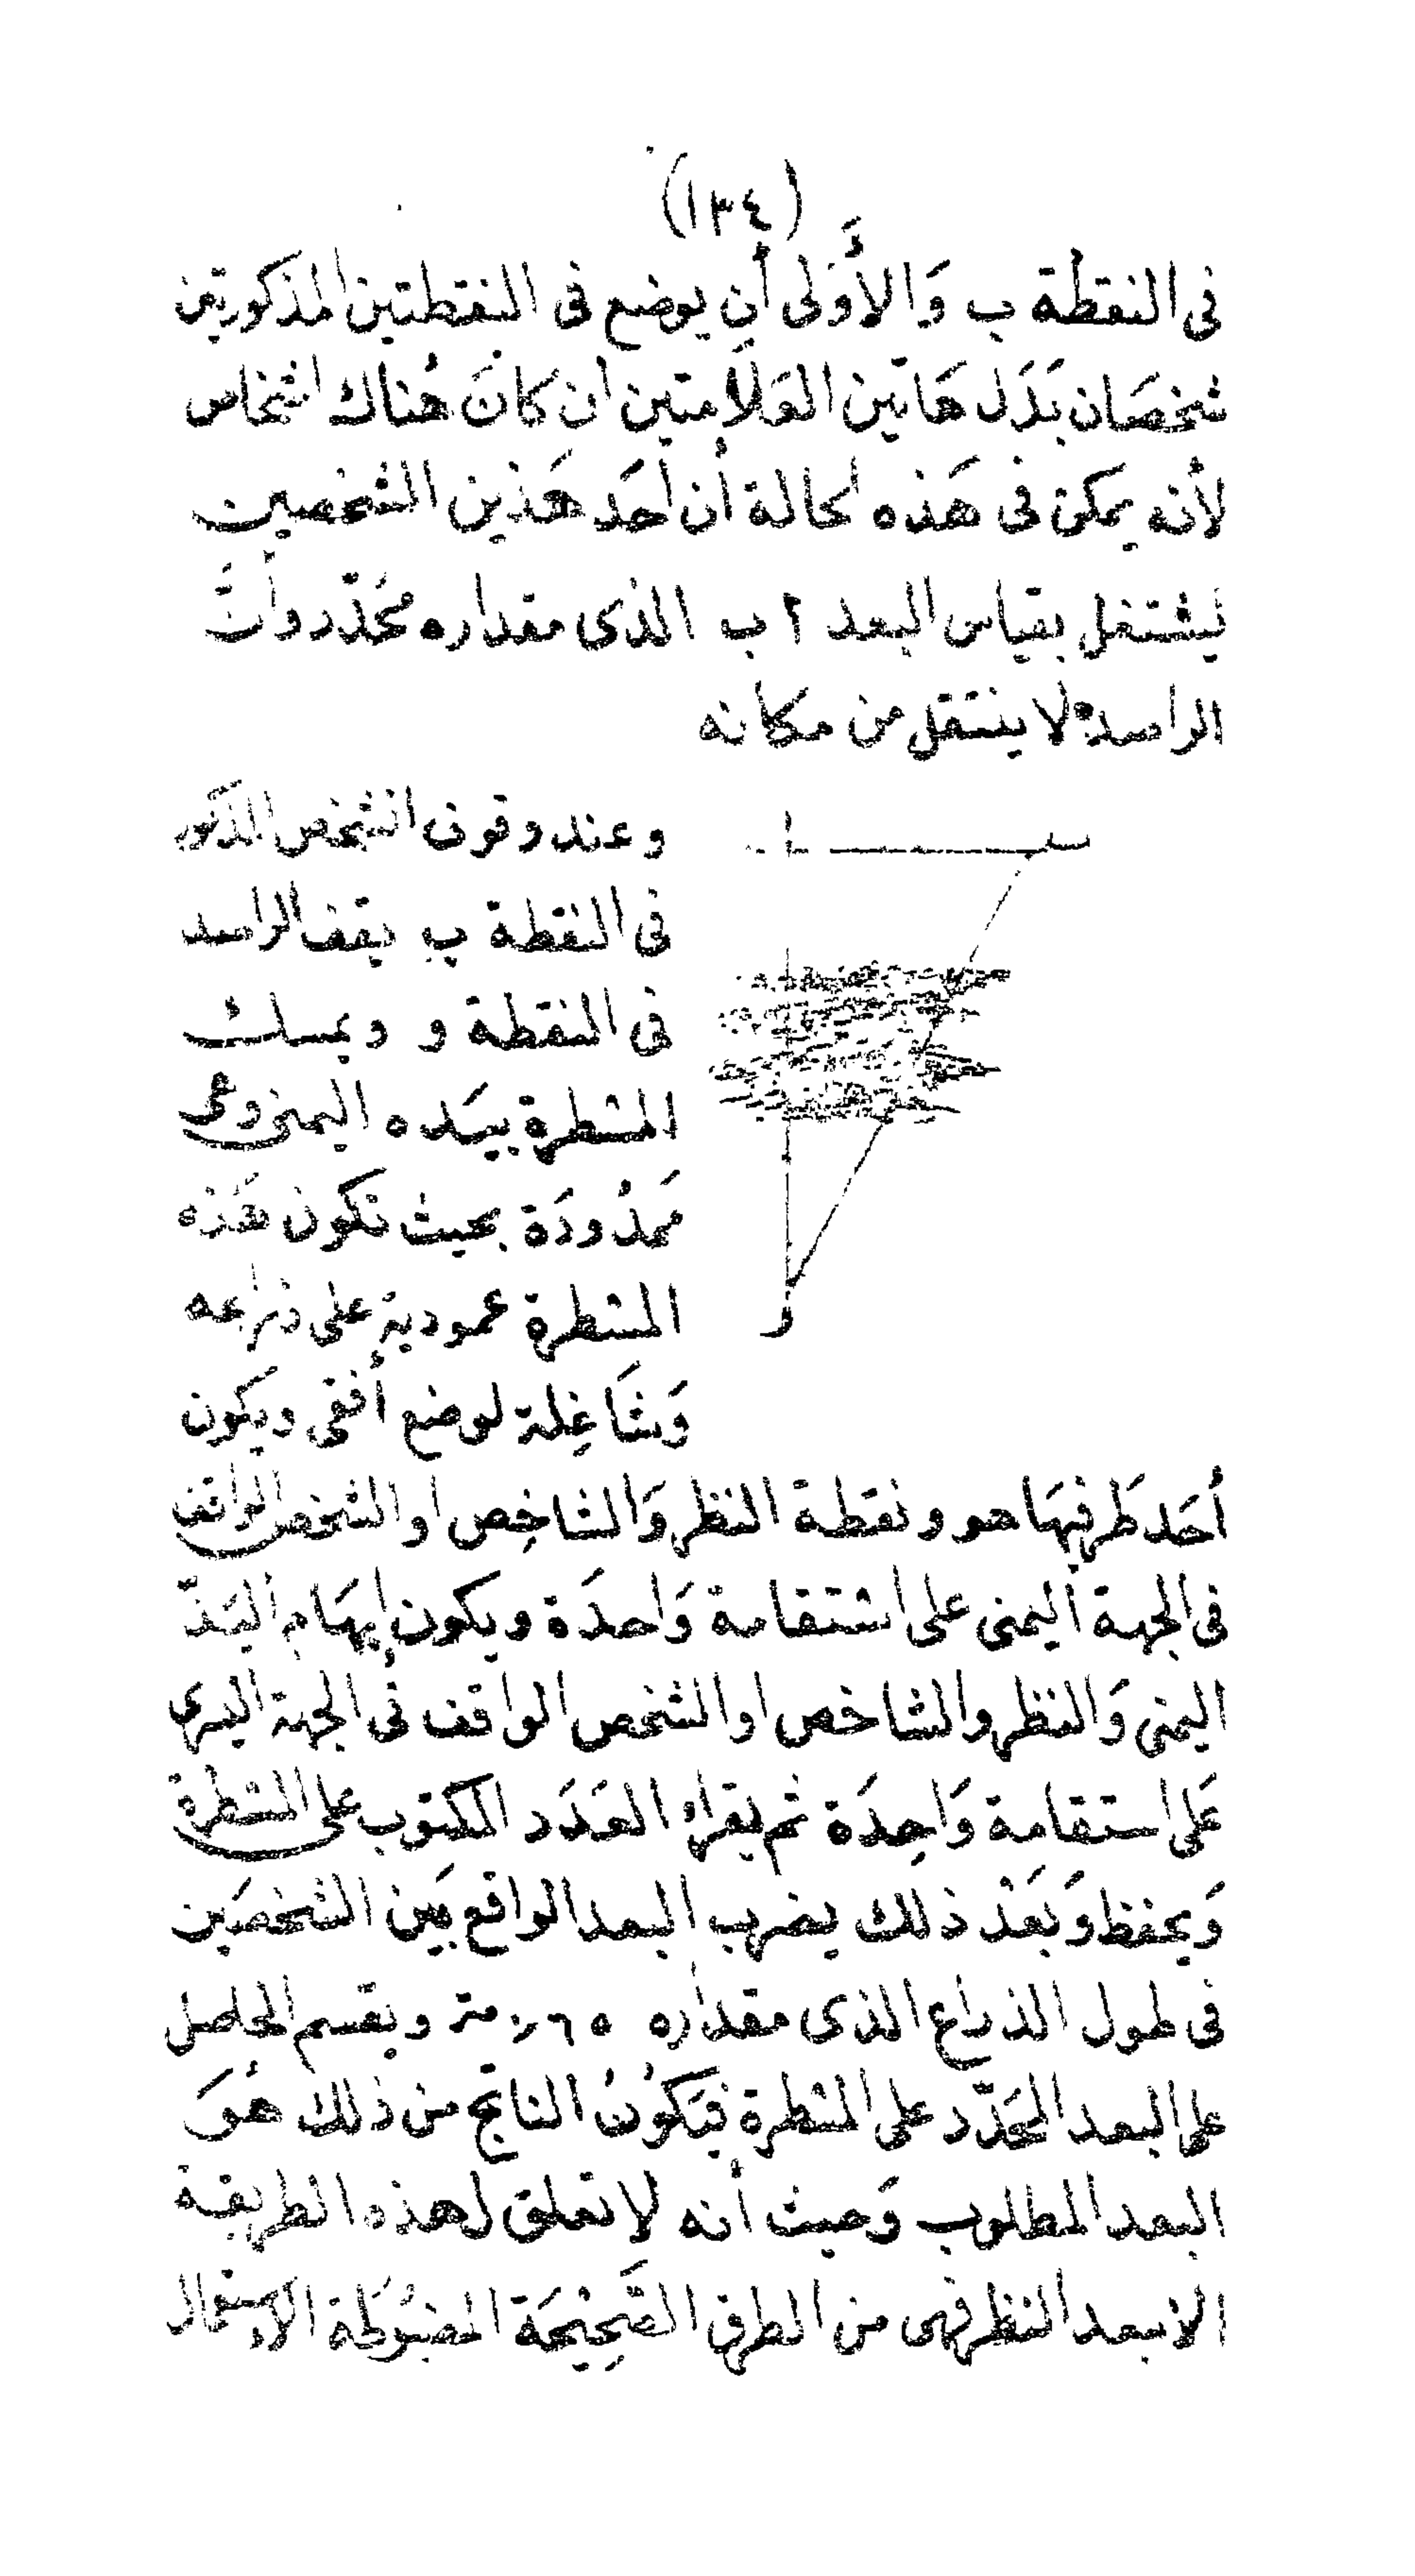 (١٣٤)
فى النقطة ب وَالأَوْلى أن يوضع فى النقطتين المذكورتين
شخصَان بَدَل هَاتين العَلَامتين ان كانَ هُناك اشخاص
لأنه يمكن فى هَذه الحالة أن أحَد هَذين الشخصين
يشتغل بقياس البعد ا ب الذى مقداره محَدّد وأنَّ
الراصد لا ينتقل من مكانه
وعند وقوف الشخص المذكور
فى النقطة ب يقف الراصد
فى النقطة و ويمسك
المسطرة بيَده اليمنى وهى
مَمدُودَة بحيث تكون هَذه
المسطرة عمودية على ذراعه
وَشَاغِلة لوضع أفقى ويكون
أحَد طَرفيهَا هو ونقطة النظر وَالشاخِص او الشخص الواقف
فى الجهة اليمنى على استقامة وَاحدَة ويكون إبهَام اليَدّ
اليمنى وَالنظر والشاخص او الشخص الواقف فى الجهة اليسرى
عَلى استقامة وَاحِدَة ثم يقرأ العَدَد المكتوب على المسطرة
وَيحفظ وَبَعْد ذلك يضرب البعد الواقع بَين الشخصَين
فى طول الذراع الذى مقداره ٠٫٦٥ متر ويقسم الحاصل
على البعد المحَدّد على المسطرة فيَكُونُ الناتج من ذلك هُوَ
البعد المطلوب وَحيث أنه لا تعلق لهذه الطريقة
الا ببعد النظر فهى من الطرق الصَّحِيْحَة المضبُوطَة الاستعمال
ا
ب
و